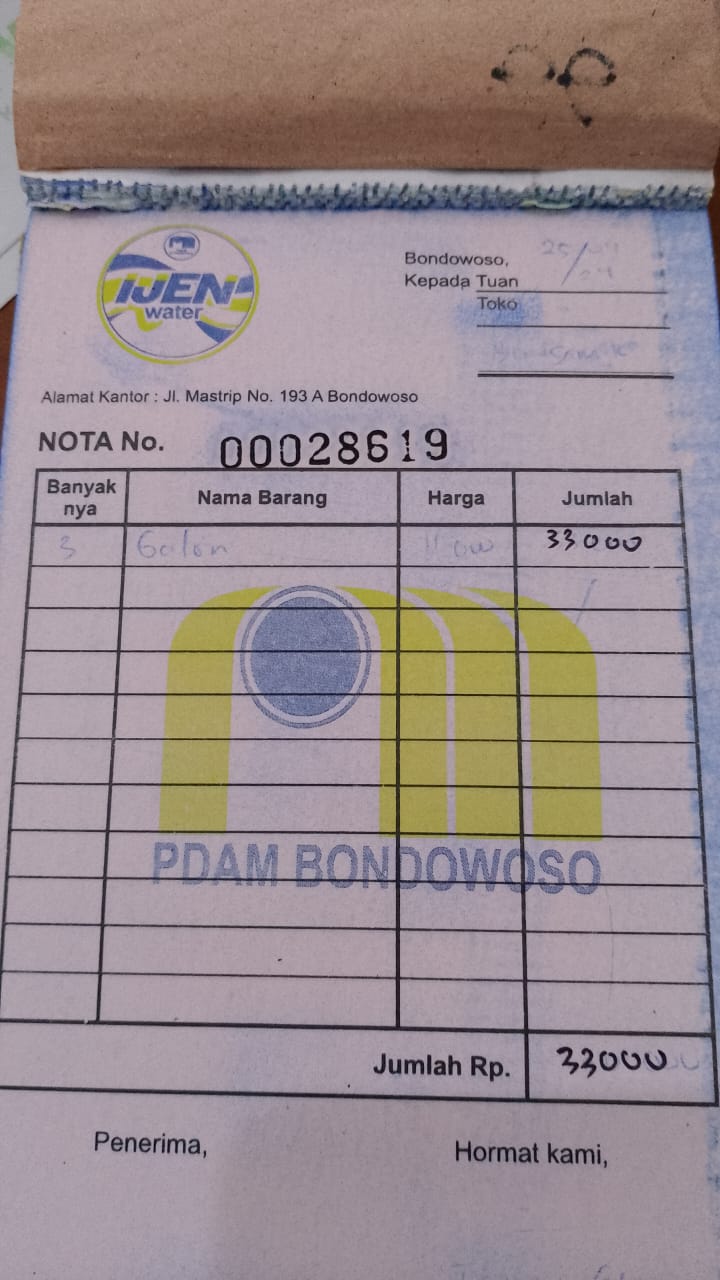 IJEN
water
Bondowoso,
Kepada Tuan
Toko
Alamat Kantor : Jl. Mastrip No. 193 A Bondowoso
NOTA No. 00028619
Banyak nya Nama Barang Harga Jumlah
3 Galon 33000
PDAM BONDOWOSO
Jumlah Rp. 33000
Penerima, Hormat kami,